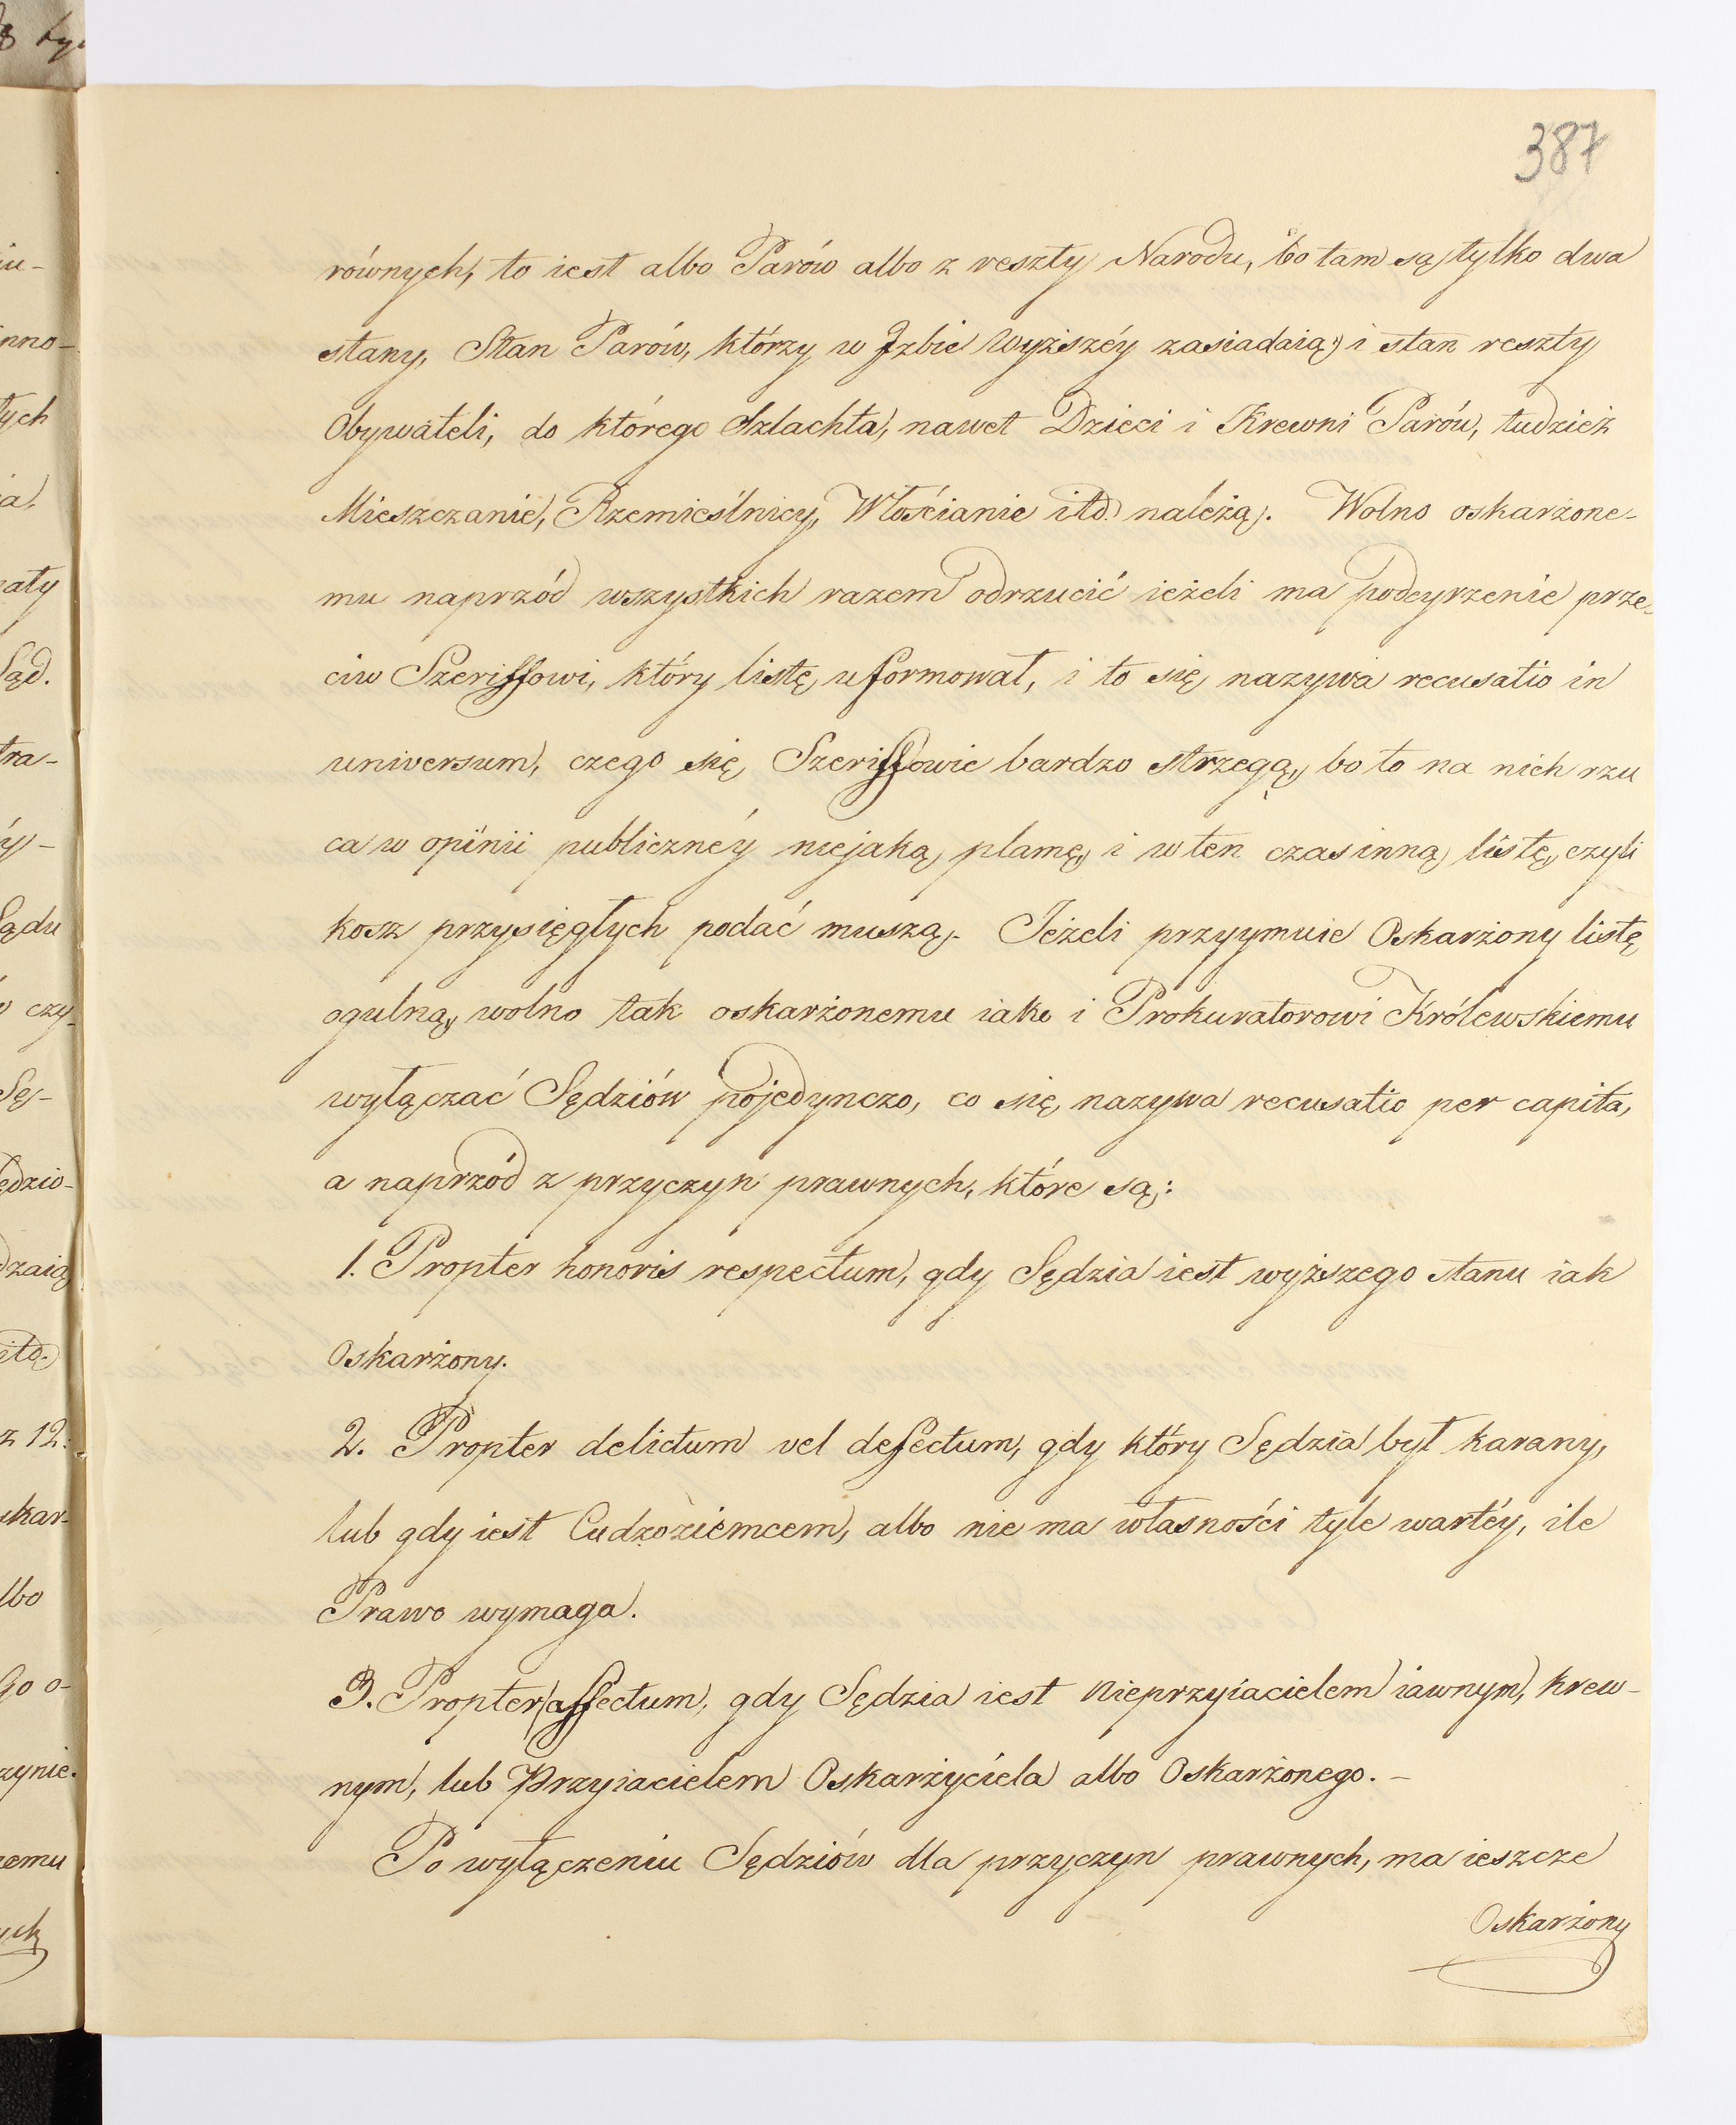 387
równych, to iest albo Parów albo z reszty Narodu, bo tam są tylko dwa
stany, Stan Parów, którzy w Izbie Wyższéy zasiadaią, i stan reszty
Obywateli, do którego Szlachta, nawet Dzieci i Krewni Parów, tudzież
Mieszczanie, Rzemieślnicy, Włościanie itd. należą. Wolno oskarżone-
mu naprzód wszystkich razem odrzucić ieżeli ma podeyrzenie prze-
ciw Szeriffowi, który listę uformował, i to się nazywa recusatio in
universum, czego się Szeriffowie bardzo strzegą, bo to na nich rzu
ca w opinii publicznéy niejaką plamę, i w ten czas inną listę, czyli
kosz przysięgłych podać muszą. Jeżeli przyymuie Oskarżony listę
ogulną, wolno tak oskarżonemu iako i Prokuratorowi Królewskiemu
wyłączać Sędziów pojedynczo, co się nazywa recusatio per capita,
a naprzód z przyczyn prawnych, które są:
1. Propter honoris respectum, gdy Sędzia iest wyższego stanu iak
Oskarżony.
2. Propter delictum vel defectum, gdy który Sędzia był karany,
lub gdy iest Cudzoziemcem, albo nie ma własności tyle wartéy, ile
Prawo wymaga.
3. Propter affectum, gdy Sędzia iest Nieprzyiacielem iawnym, krew-
nym, lub Przyiacielem Oskarżyciela albo Oskarżonego. -
Po wyłączeniu Sędziów dla przyczyn prawnych, ma ieszcze
Oskarżony